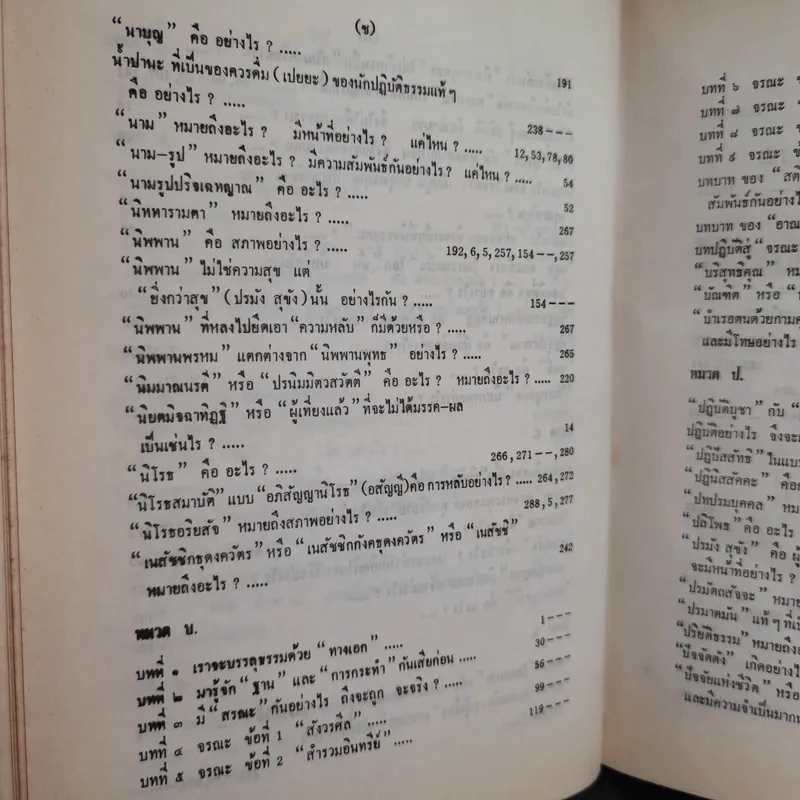 (ช)
“นาบุญ” คือ อย่างไร ? .....
น้ำปานะ ที่เป็นของควรดื่ม (เปยยะ) ของนักปฏิบัติธรรมแท้ๆ
คือ อย่างไร ? ..... 191
“นาม” หมายถึงอะไร ? มีหน้าที่อย่างไร ? แค่ไหน ? ..... 238---
“นาม-รูป” หมายถึงอะไร ? มีความสัมพันธ์กันอย่างไร? แค่ไหน ? ..... 12,53,78,80
“นามรูปปริจเฉทญาณ” คือ อะไร ? ..... 54
“นิททารามตา” หมายถึงอะไร ? ..... 52
“นิพพาน” คือ สภาพอย่างไร ? ..... 267
“นิพพาน” ไม่ใช่ความสุข แต่ 192,6,5,257,154--,257
“ยิ่งกว่าสุข” (ปรมัง สุขัง) นั้น อย่างไรกัน ? ..... 154---
“นิพพาน” ที่หลงไปยึดเอา “ความหลับ” ก็มีด้วยหรือ ? ..... 267
“นิพพานพรหม” แตกต่างจาก “นิพพานพุทธ” อย่างไร ? ..... 265
“นิมมาณนรดี” หรือ “ปรนิมมิตวสวัตตี” คือ อะไร ? หมายถึงอะไร ? ..... 220
“นิยตมิจฉาทิฏฐิ” หรือ “ผู้เที่ยงแล้ว” ที่จะไม่ได้มรรค-ผล
เป็นเช่นไร ? ..... 14
“นิโรธ” คือ อะไร ? ..... 266,271--,280
“นิโรธสมาบัติ” แบบ “อภิสัญญานิโรธ” (อสัญญี) คือ การหลับอย่างไร ? ..... 264,272
“นิโรธอริยสัจ” หมายถึงสภาพอย่างไร ? ..... 288,5,277
“เนสัชชิกธุดงควัตร” หรือ “เนสัชชิกกังคธุดงควัตร” หรือ “เนสัชชิ”
หมายถึงอะไร ? ..... 242
หมวด บ.
บทที่ ๑ เราจะบรรลุธรรมด้วย “ทางเอก” ..... 1---
บทที่ ๒ มารู้จัก “ฐาน” และ “การกระทำ” กันเสียก่อน ..... 30---
บทที่ ๓ มี “สรณะ” กันอย่างไร ถึงจะถูก จะจริง ? ..... 56---
บทที่ ๔ จรณะ ข้อที่ 1 “สังวรศีล” ..... 99---
บทที่ ๕ จรณะ ข้อที่ 2 “สำรวมอินทรีย์” ..... 119---
บทที่ ๖ จรณะ
บทที่ ๗ จรณะ
บทที่ ๘ จรณะ
บทที่ ๙ จรณะ
บทบาท ของ “สติ
สัมพันธ์กันอย่างไ
บทบาท ของ “อาณ
บทปฏิบัติสู่ “จรณะ
“บริสุทธิคุณ” หมา
“บัณฑิต” หรือ
“บำเรอตนด้วยกามค
และมีโทษอย่างไร
หมวด ป.
“ปฏิบัติบูชา” กับ
ปฏิบัติอย่างไร จึงจะ
“ปฏิปัสสัทธิ” ในแบบ
“ปฏินิสสัคคะ” คือ
“ปทปรมบุคคล” หม
“ปลิโพธ” คือ อะไร
“ปรมัง สุขัง” คือ ผู้
จะมีหน้าที่อย่างไร ?
“ปรมัตถสัจจะ” หมาย
“ปรมาตมัน” แท้ๆ ที่เ
“ปริยัติธรรม” หมายถึง
“ปัจจัตตัง” เกิดอย่างไ
“ปัจจัยแห่งชีวิต” หรือ
และมีความจำเป็นมาก